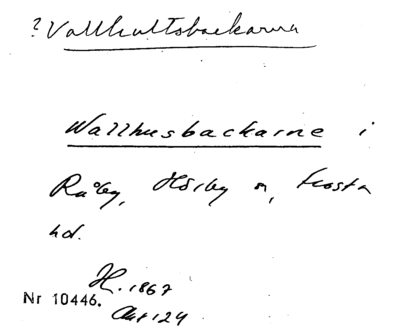 ? Vallhultsbackarna
Wallhusbackarne i
Råby, Hörby sn, Frosta
hd.
H. 1867
Nr 10446.
Akt 124